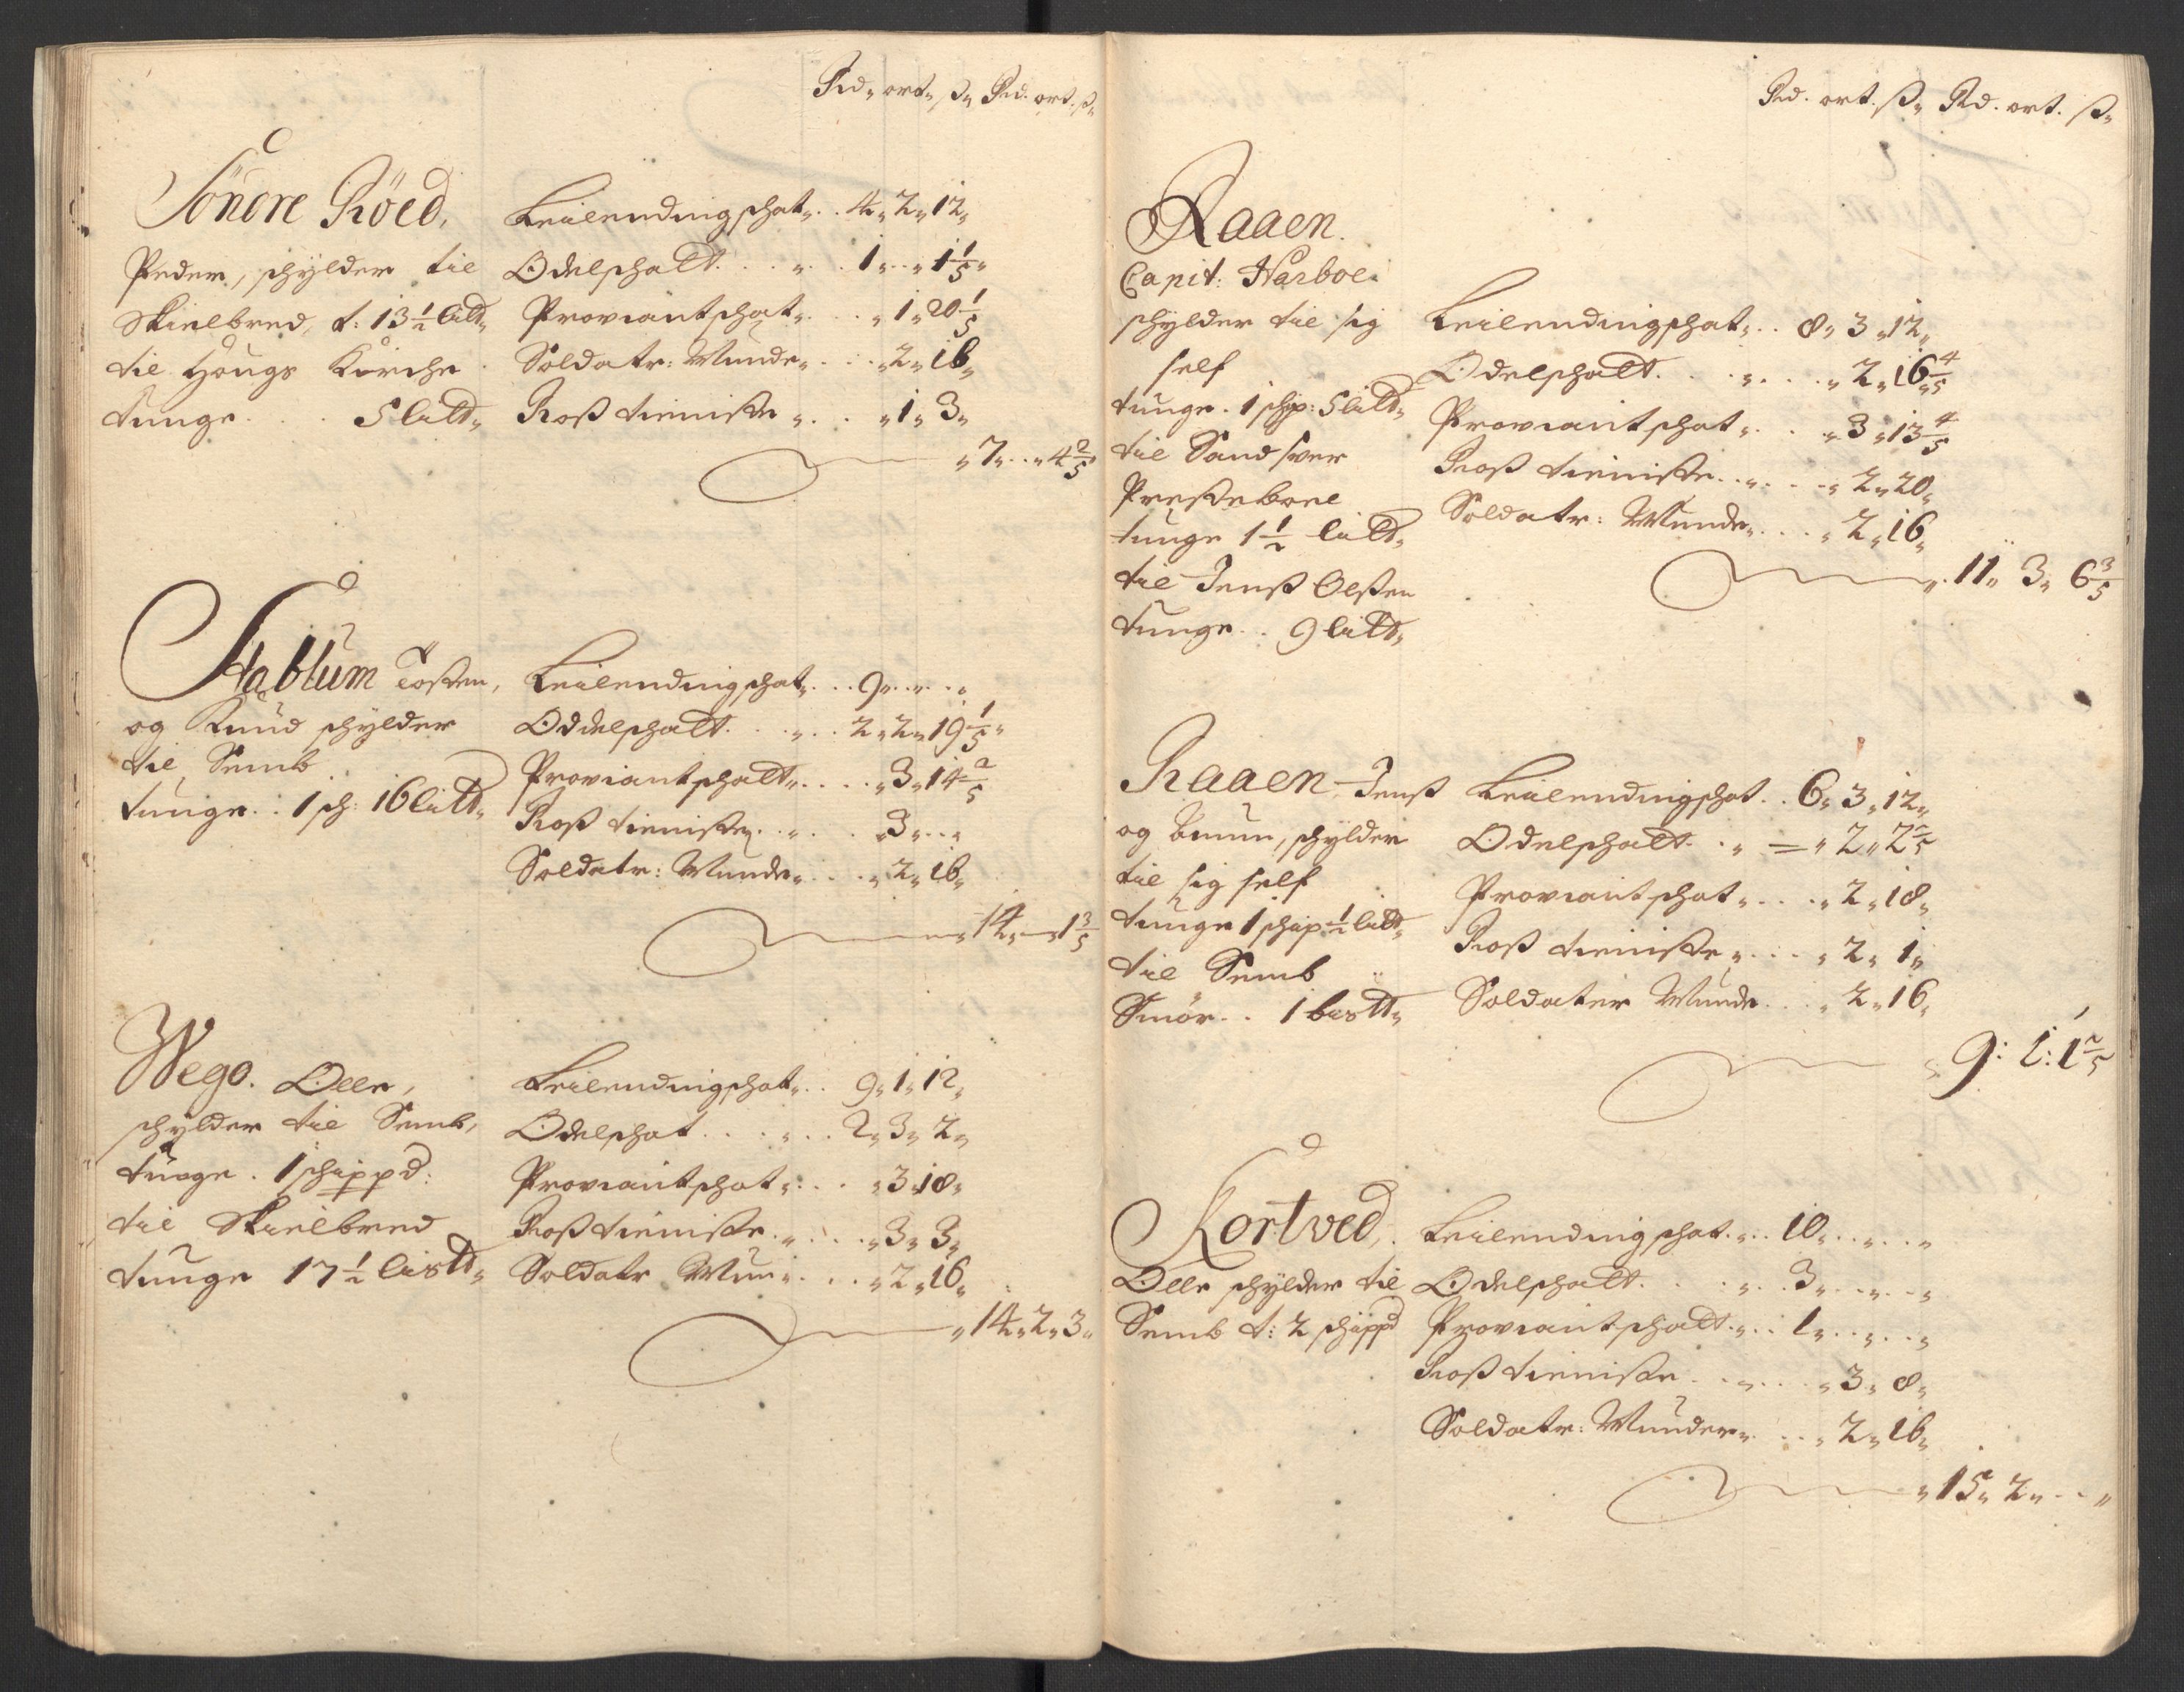 Rd„ ort„ ß„ Rd. ort. ß„
Söndre Röed,
Peder, schylder til
Skielbred, t: 13 1/2 lild„
til Hougs Kirche
tunge . . . 5 lild„
Leilendingschat„ . . 4„ 2„ 12„
Odelschatt . . . „ . . 1„ . „ 1 1/5„
Proviantschat„ . . . „ 1„ 20 1/5
Soldatr: Munde„ . . . „ 2„ 16„
Roß tieniste „ . . „ 1„ 3„
„ 7„ . . „ 4 2/5„
Stablum Tosten,
og Knud schylder
til Semb
tunge . . 1 sch: 16 lild„
Leilendingschat„ . . 9„ . „ . „
Oddelschatt . . „ . . 2„ 2„ 19 1/5„
Proviantschatt„ . . . . „ 3„ 14 2/5
Roß tieniste . . „ . . „ 3„ . . „
Soldatr: Munde„ . . . „ 2„ 16„
„ 14„ „ 1 3/5
Wego. Olle,
schylder til Semb,
tunge . 1 schippd:
til Skielbred
tunge 17 1/2 lisld„
Leilendingschat„ . . 9„ 1„ 12„
Odelschat . . . „ . . 2„ 3„ 2„
Proviantschat„ . . . „ 3„ 18„
Roß tieniste . „ . . . „ 3„ 3„
Soldatr Mun„ . . . „ 2„ 16„
„ 14„ 2„ 3„
Rd. ort. ß„ Rd. ort. ß„
Raaen.
Capit: Narboe:
schylder til sig
self
tunge . 1 schp: 5 lild„
til Sandsver
Presteboel
tunge 1 1/2 lild„
til Jenß Olsten
tunge . . 9 lild„
Leilendingschat„ . . 8„ 3„ 12„
Odelschatt . . . „ . . . „ 2„ 16 4/5
Proviantschat„ . . „ 3„ 13 4/5
Roß tieniste . . „ . . . „ 2„ 20„
Soldatr: Munde„ . . . „ 2„ 16„
„ 11„ 3„ 6 3/5
Raaen Jenß
og schylder
til sig self
tunge 1 schip 1/2 lild„
til Semb
Smör . . 1 bisld„
Leilendingschat . . 6„ 3„ 12„
Odelschatt . „ = „ 2„ 2 2/5
Proviantschat„ . . . „ 2„ 18„
Roß tieniste „ . . . „ 2„ 1„
Soldater Munde . . . „ 2„ 16„
„ 9: 1: 1 2/5
Kortved,
Olle schylder til
Semb t: 2 schippd
Leilendingschat . „ . . 10„ . „ . „
Odelschatt . . . „ . . 3„ . . „ . . „
Proviantschatt . „ . . 1„ . . „ . . „
Roß tieniste . . „ . . . „ 3„ 8„
Soldatr: Munder„ . . . „ 2„ 16„
„ 15„ 2„ . . „